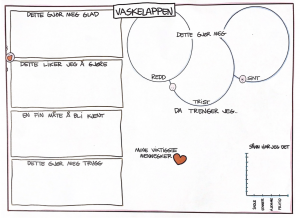 VASKELAPPEN
DETTE GJØR MEG GLAD
DETTE LIKER JEG Å GJØRE
EN FIN MÅTE Å BLI KJENT
DETTE GJØR MEG TRYGG
DETTE GJØR MEG
REDD
SINT
TRIST
DA TRENGER JEG..
MINE VIKTIGSTE
MENNESKER
SÅNN HAR JEG DET
SKOLE
HJEMME
FRITID